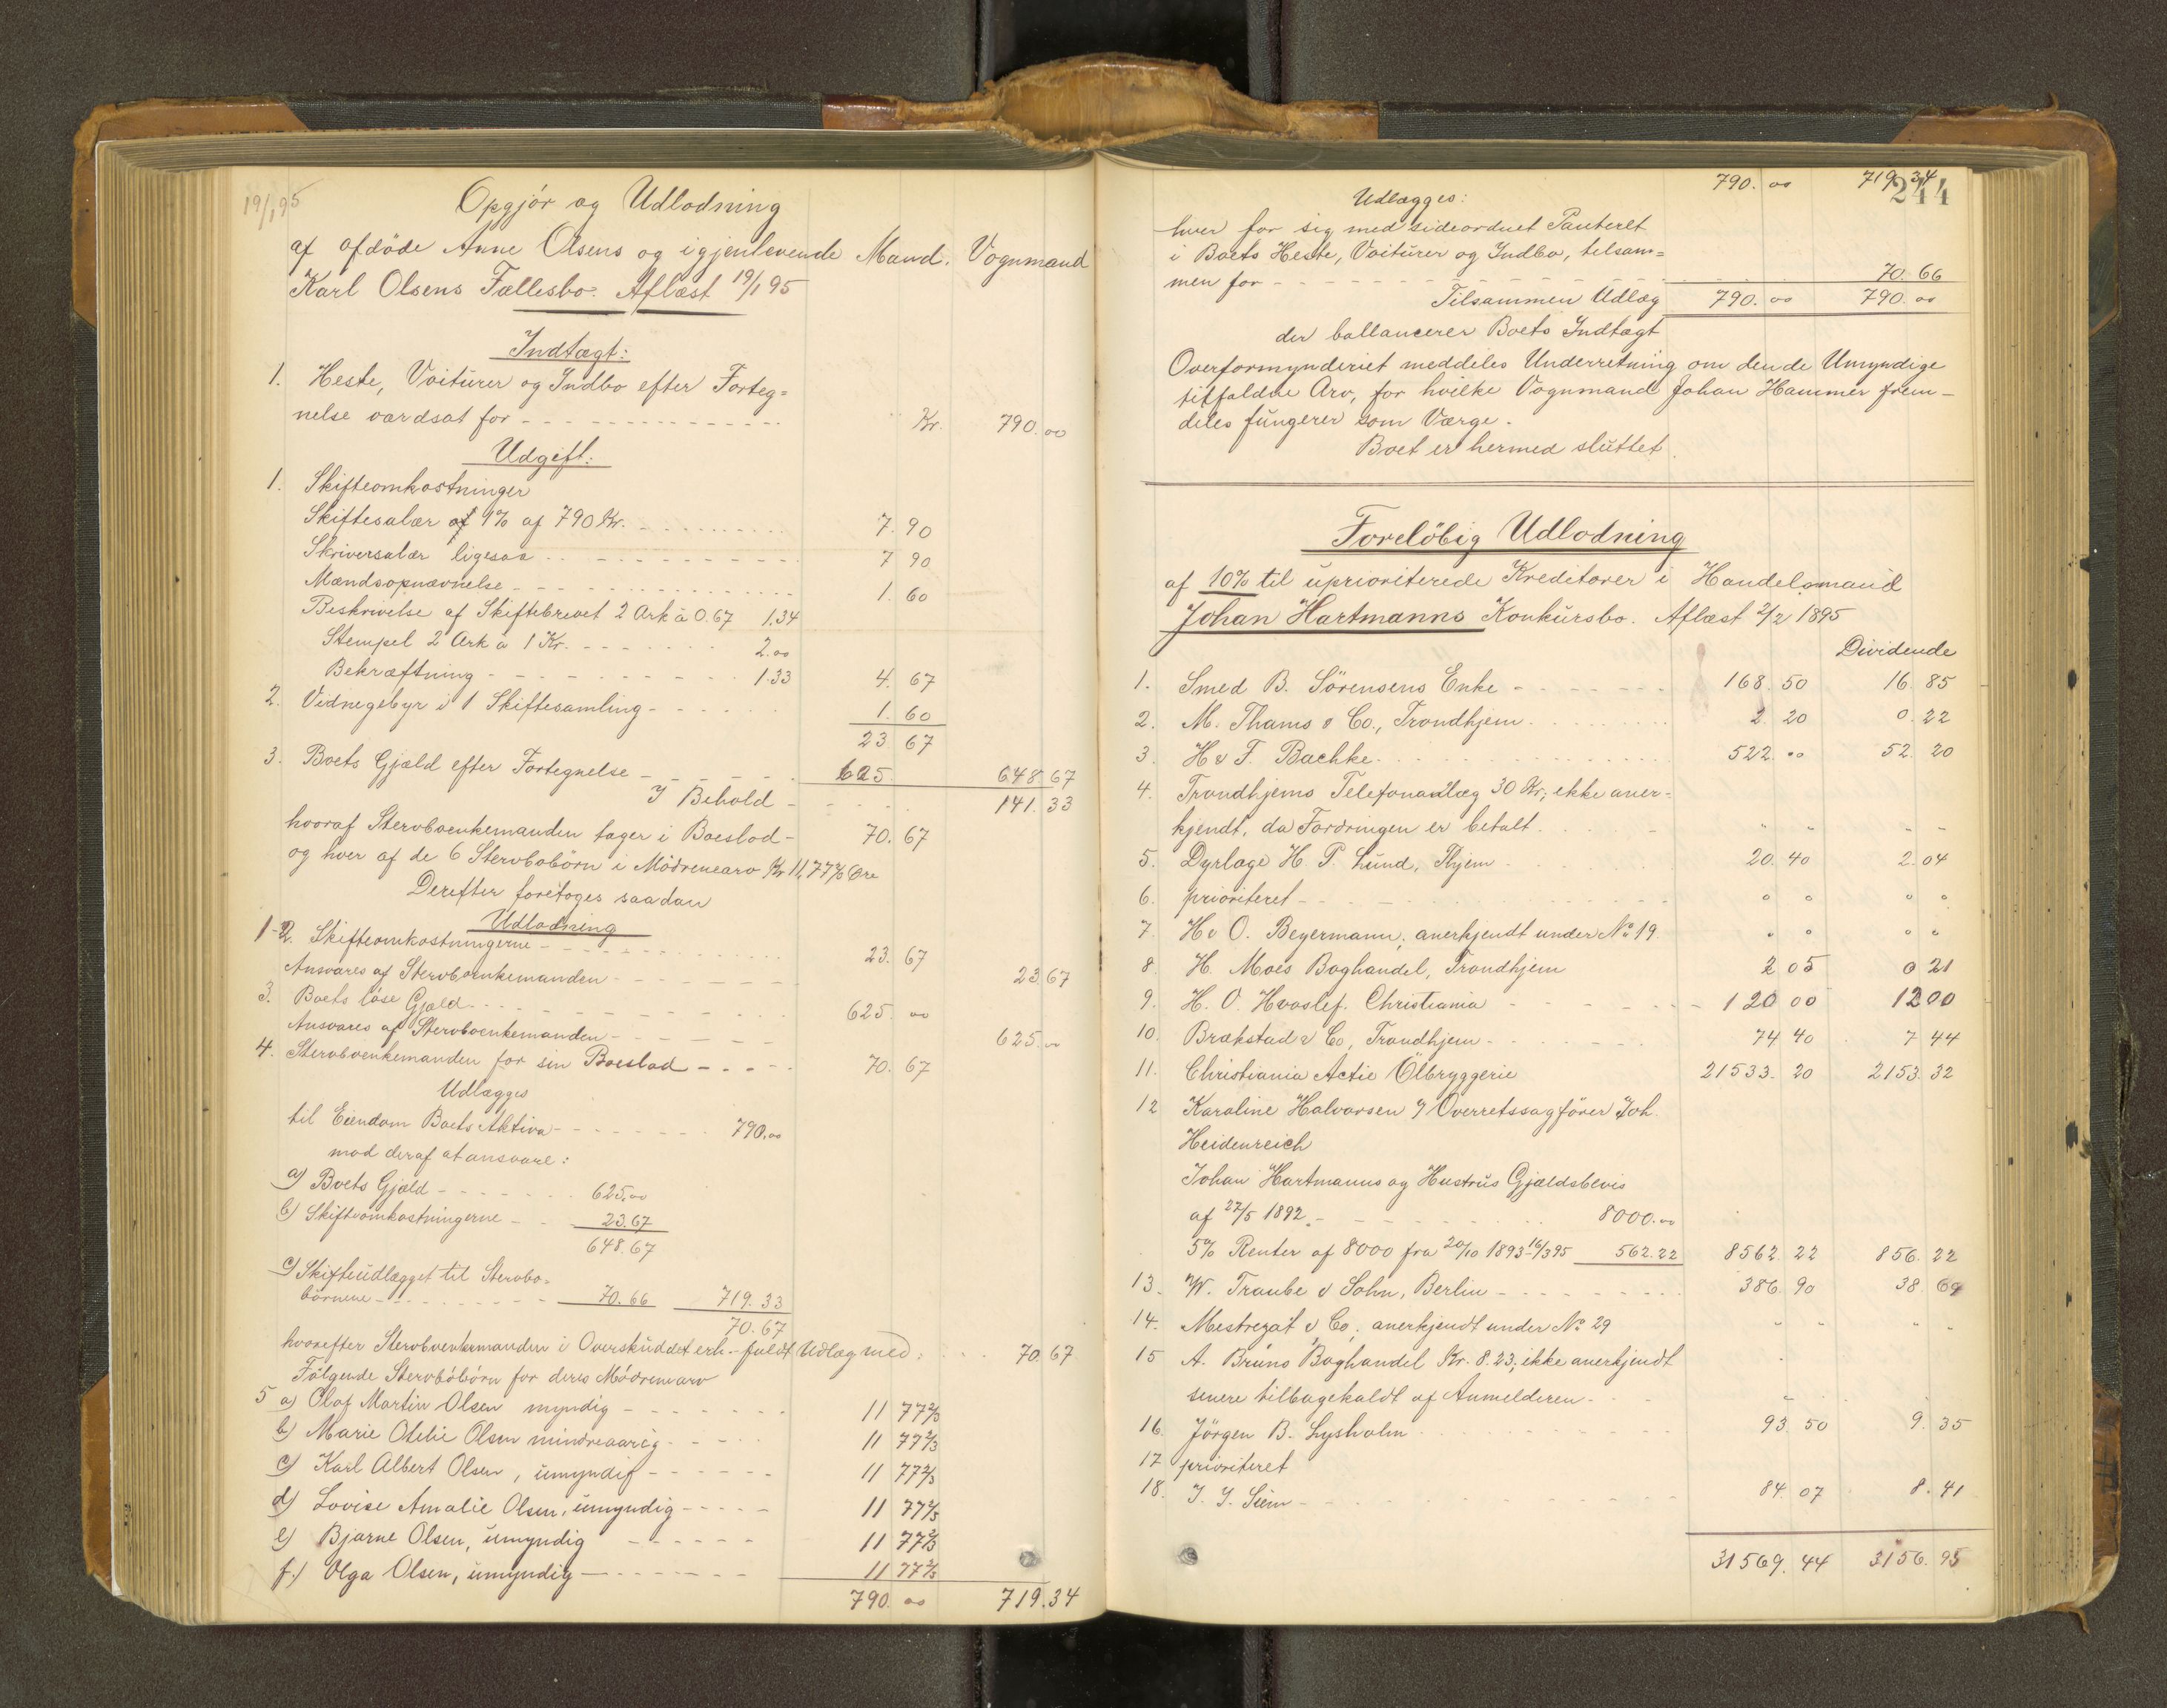 19/1 95
Opgjör og Udlodning
af afdöde Anne Olsens og igjenlevende Mand, Vognmand
Karl Olsens Fællesbo. Aflæst 19/1 95
Indtægt:
1. Heste, Voiturer og Indbo efter Forteg=
nelse værdsat for - - - Kr. 790.00
Udgift:
1. Skifteomkostninger
Skiftesalær af 1% af 790 Kr. 7.90
Skriversalær ligesaa 7 90
Mændsopnævnelse 1.60
Beskrivelse af Skiftebrevet 2 Ark à 0.67 1.34
Stempel 2 Ark à 1 Kr. 2.00
Bekræftning 1.33 4.67
2. Vidnegebyr i 1 Skiftesamling 1.60
23 67
3. Boets Gjæld efter Fortegnelse 625. 648 67
I Behold 141.33
hvoraf Stervboenkemanden tager i Boeslod 70.67
og hver af de 6 Stervbobörn i Mödrenearv Kr 11,77 2/3 Øre
Derefter foretoges saadan
Udlodning
1-2. Skifteomkostningerne 23.67
Ansvares af Stervboenkemanden 23.67
3. Boets löse Gjæld 625.00
Ansvares af Stervboenkemanden 625.00
4. Stervboenkemanden for sin Boeslod 70.67
Udlægges
til Eiendom Boets Aktiva 790.00
mod deraf at ansvare:
a) Boets Gjæld 625.00
b) Skifteomkostningerne 23.67
648.67
c) Skifteudlægget til Stervbo=
börnene 70.66 719.33
70.67
hvorefter Stervboenkemanden i Overskuddet erh. fuldt Udlæg med: 70.67
Fölgende Stervbobörn for deres Mödrenearv
5 a) Olaf Martin Olsen myndig 11 77 2/3
b) Marie Otelie Olsen mindreaarig 11 77 2/3
c) Karl Albert Olsen, umyndig 11 77 2/3
d) Lovise Amalie Olsen, umyndig 11 77 2/3
e) Bjarne Olsen, umyndig 11 77 2/3
f.) Olga Olsen, umyndig 11 77 2/3
790.00 719.34
790.00 719.34
244
Udlægges:
hver for sig med sideordnet Panteret
i Boets Heste, Voiturer og Indbo, tilsam=
men for 70.66
Tilsammen Udlæg 790.00 790.00
der ballancerer Boets Indtægt
Overformynderiet meddeles Underretning om den de Umyndige
tilfaldne Arv, for hvilke Vognmand Johan Hammer frem-
deles fungerer som Værge.
Boet er hermed sluttet.
Forelöbig Udlodning
af 10% til uprioriterede Kreditorer i Handelsmand
Johan Hartmanns Konkursbo. Aflæst 2/2 1895
Dividende
1. Smed B. Sörensens Enke 168.50 16.85
2. M. Thams & Co., Trondhjem 2.20 0.22
3. H & F. Bachke 522.00 52.20
4. Trondhjems Telefonanlæg 30 Kr.; ikke aner=
kjendt, da Fordringen er betalt.
5. Dyrlæge H. P. Lund, Thjem 20.40 2.04
6. prioriteret
7. H & O. Beyermann, anerkjendt under No 19.
8. H. Moes Boghandel, Trondhjem 2 05 0 21
9. H. O. Hvoslef. Christiania 120 00 12 00
10. Brækstad & Co, Trondhjem 74 40 7 44
11. Christiania Actie Ölbryggerie 21533.20 2153.32
12 Karoline Halvorsen v/ Overretssagförer Joh.
Heidenreich
Johan Hartmanns og Hustrus Gjældsbevis
af 27/5 1892. 8000.00
5% Renter af 8000 fra 20/10 1893-16/3 95 562.22 8562.22 856.22
13. W. Traube & Sohn, Berlin 386.90 38.69
14. Mestrezat & Co; anerkjendt under No 29
15 A. Bruns Boghandel Kr. 8.23; ikke anerkjendt
senere tilbagekaldt af Anmelderen.
16. Jörgen B. Lysholm 93.50 9.35
17 prioriteret
18. J. J. Siem 84.07 8.41
31569.44 3156.95